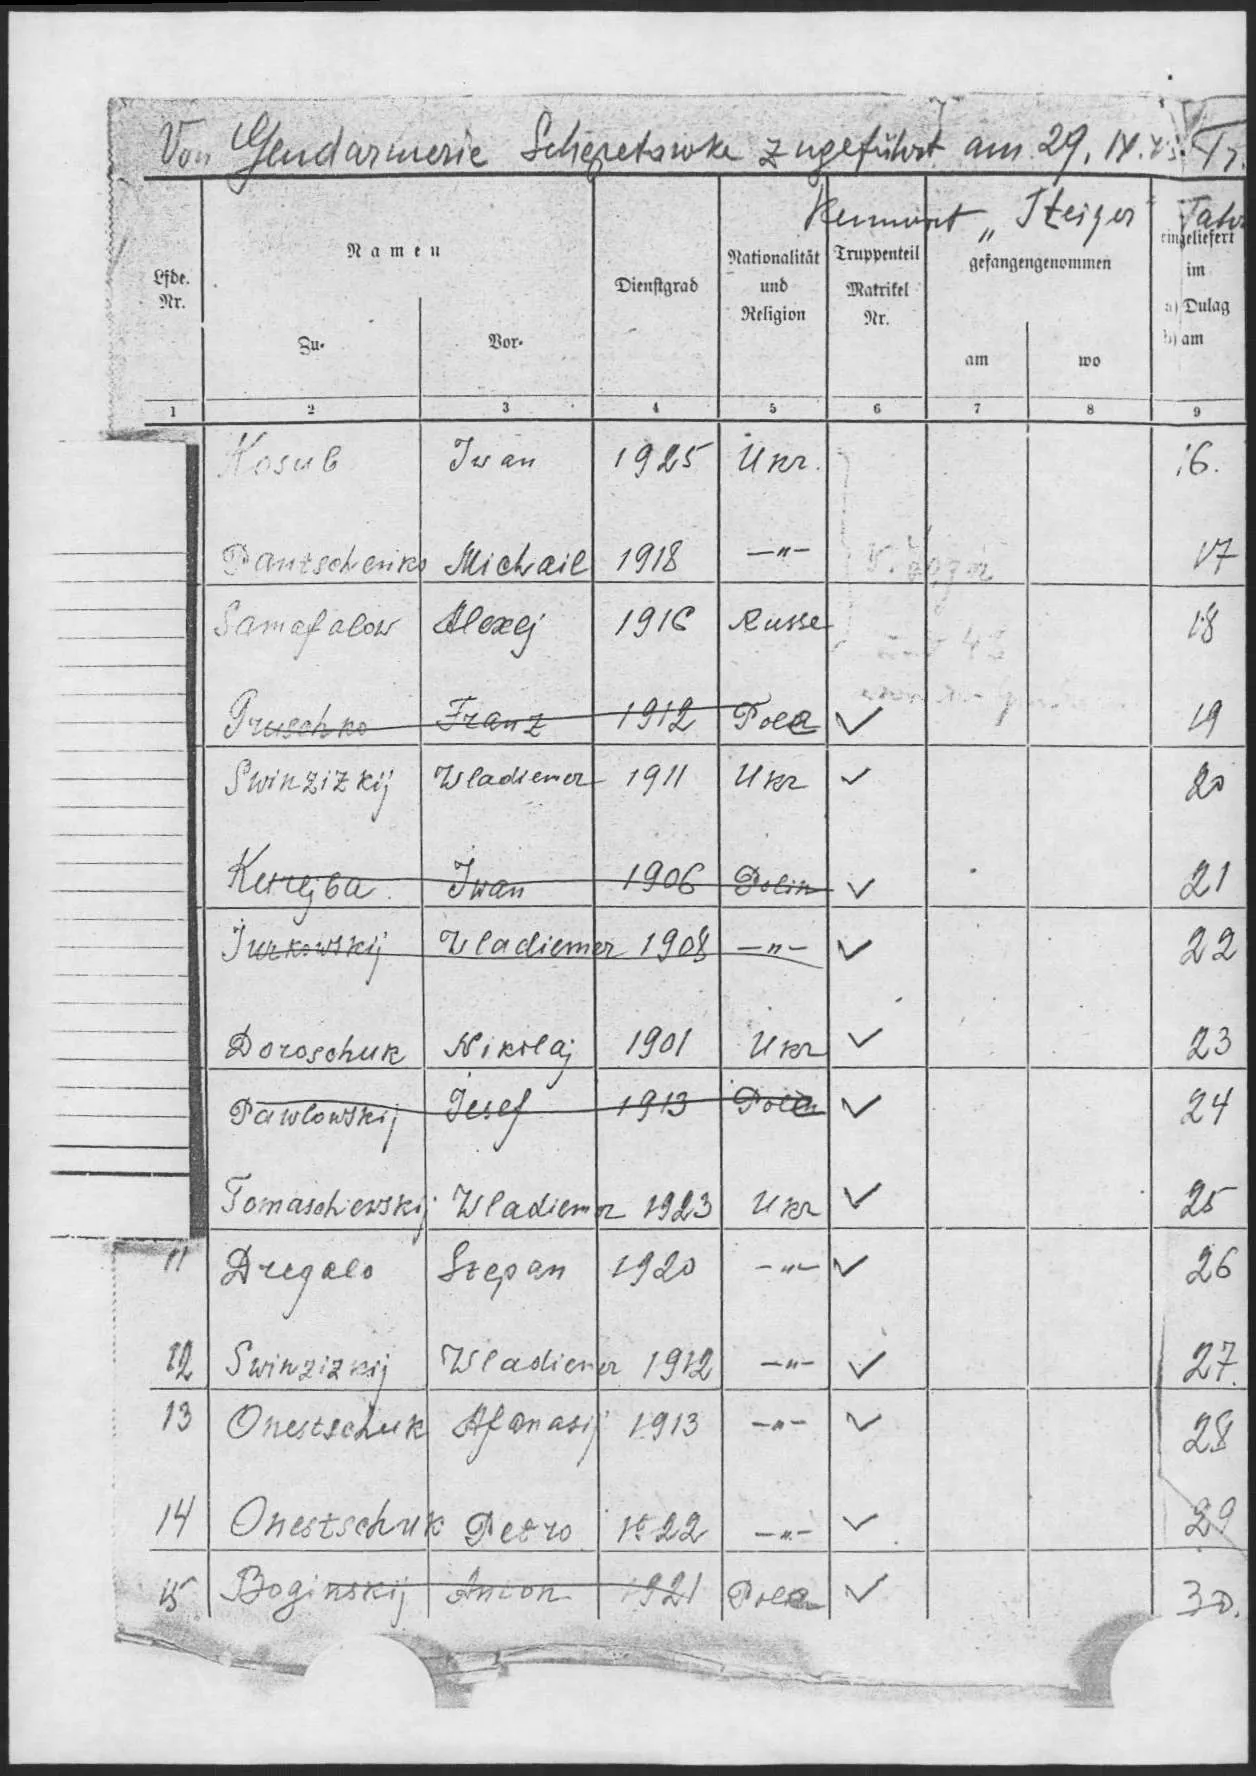 Von Gendarmerie Schepetowka zugeführt am 29. IX. 43.
Kennwort „Steiger"
Lfde. Nr.
Namen
Zu-
Vor-
Dienstgrad
Nationalität und Religion
Truppenteil Matrikel Nr.
gefangengenommen
am
wo
eingeliefert im a) Dulag b) am
1 2 3 4 5 6 7 8 9
Kosub Iwan 1925 Ukr. 16.
Pantschenko Michail 1918 —"— 17
Samofalow Alexej 1916 Russe 18
Pruschko Franz 1912 Pole ✓ 19
Swinzizkij Wladiemer 1911 Ukr ✓ 20
Iwan 1906 Polin ✓ 21
Jurkowskij Wladiemer 1908 —"— ✓ 22
Doroschuk Nikolaj 1901 Ukr ✓ 23
Pawlowskij Josef 1913 Polen ✓ 24
Tomaschewskij Wladiemer 1923 Ukr ✓ 25
11 Dregalo Stepan 1920 —"— ✓ 26
12 Swinzizkij Wladiemer 1912 —"— ✓ 27.
13 Onestschuk Afanasij 1913 —"— ✓ 28
14 Onestschuk Petro 1922 —"— ✓ 29
15 Boginskij Anton 1921 Polen ✓ 30.